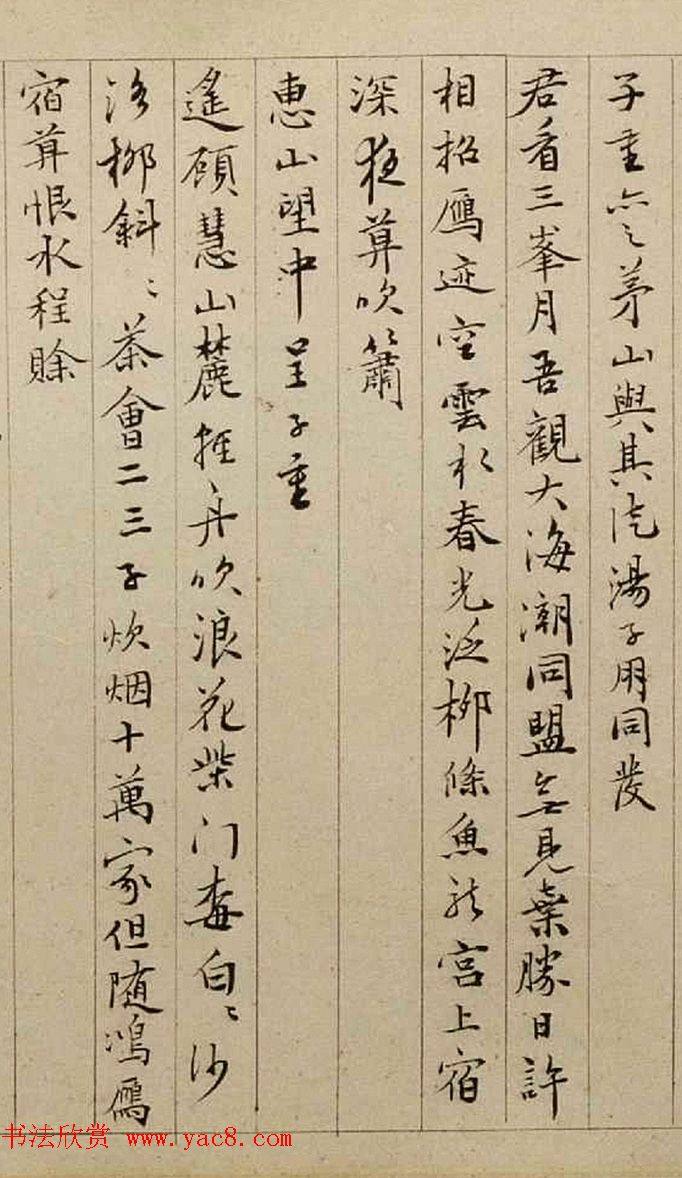 子重亦之茅山與其湯子用同發
君看三峯月吾觀大海潮同盟無見棄勝日許
相招鴈迹空雲水春光泛柳條魚龍宮上宿
深夜莫吹簫
惠山望中呈子重
遙顧慧山麓舟吹浪花柴门杳白〻沙
柳斜〻茶會二三子炊烟十萬家但随鴻鴈
宿莫恨水程賒
书法欣赏 www.yac8.com